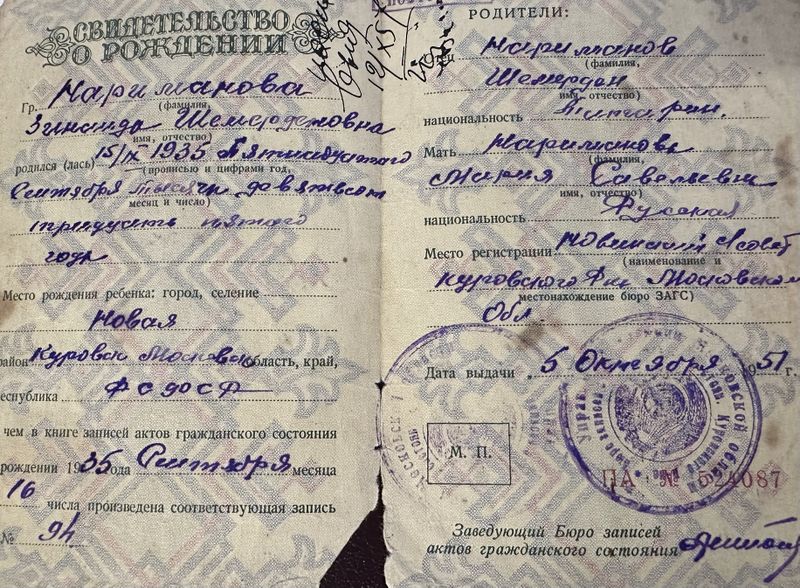 СВИДЕТЕЛЬСТВО
О РОЖДЕНИИ
Гр. Нариманова
(фамилия,
Зинаида Шемерденовна
имя, отчество)
родился (лась) 15/IX-1935 Пятнадцатого
(прописью и цифрами год,
Сентября тысяча девятьсот
месяц и число)
тридцать пятого
года
Место рождения ребенка: город, селение
Новая
район Куровск Московс область, край,
республика РСФСР
чем в книге записей актов гражданского состояния
рождении 1935 года Сентября месяца
16 числа произведена соответствующая запись
№ 94
РОДИТЕЛИ:
Отец Нариманов
(фамилия,
Шемердян
имя, отчество)
национальность Татарин
Мать Нариманова
(фамилия,
Мария Савельевна
имя, отчество)
национальность Русская
Место регистрации Новинский с/совет
(наименование и
Куровского р-н Московской
местонахождение бюро ЗАГС)
Обл.
Дата выдачи 5 Октября 1951
М. П.
ПА № 524087
Заведующий Бюро записей
актов гражданского состояния